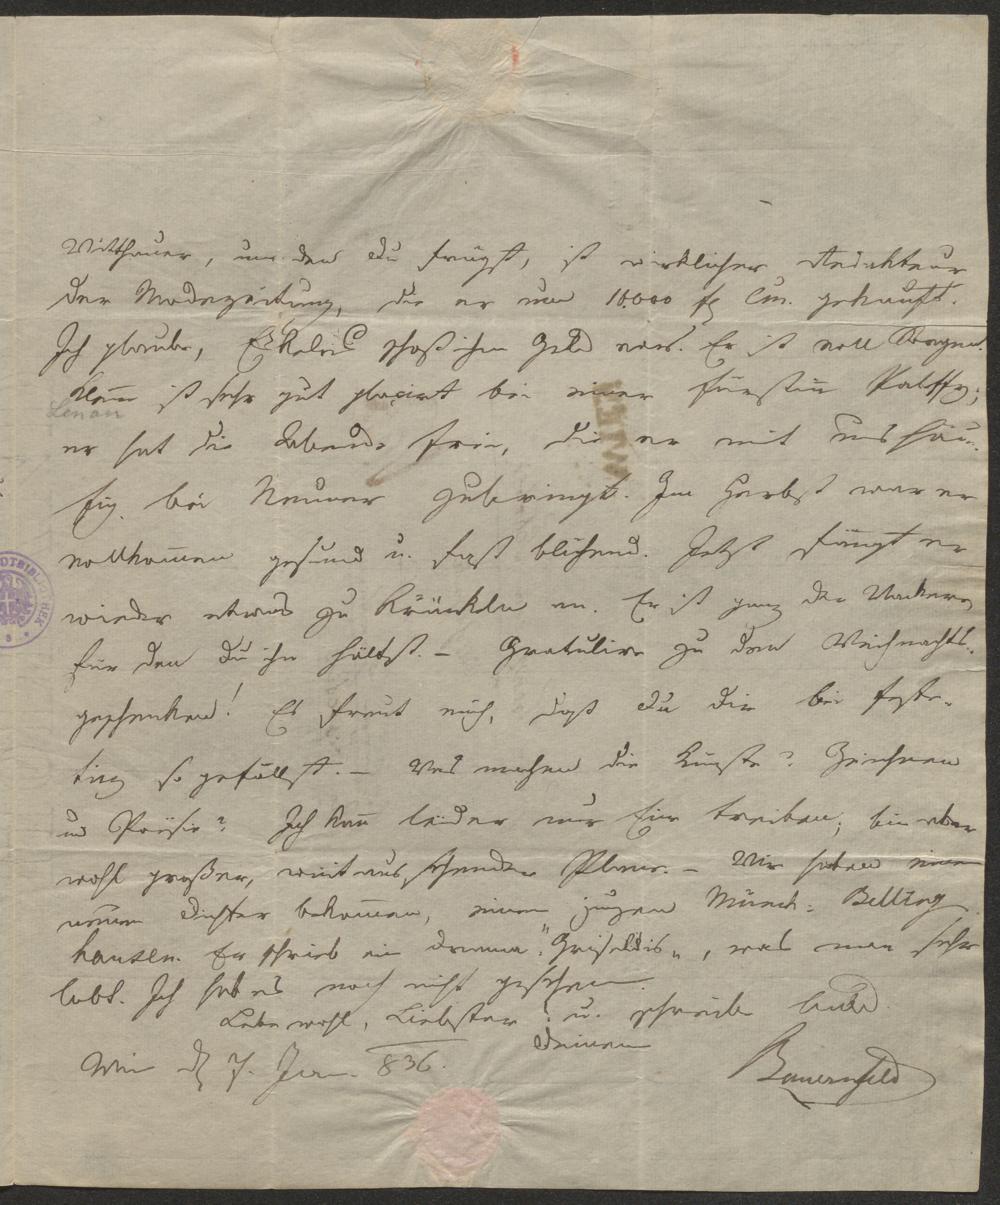 Witthauer, um den Du frägst, ist wirklicher Redakteur
der Modezeitung, die er um 10.000 fl Cm. gekauft.
Ich glaube, schoß ihm Geld vor. Er ist voll Sorgen.
ist sehr gut placirt bei einer Fürstin Palffy;
Lenau
er hat die Abende frei, die er mit uns häu-
fig bei Neuner zubringt. Im Herbst war er
vollkom̄en gesund u. fast blühend. Jetzt fängt er
wieder etwas zu kränkeln an. Er ist ganz der Wackere,
für den Du ihn hältst. – Gratulire zu den Weihnachts-
geschenken! Es freut mich, daß Du Dir bei
so gefällst. – Was machen die Künste? Zeichnen
und Poesie? Ich kan̄ leider nur Eine treiben; bin aber
voll großer, weitaussehender Plane. – Wir haben einen
neuen Dichter bekom̄en, einen jungen Münch-Belling-
hausen. Er schrieb ein Drama "Griseldis", was man sehr
lobt. Ich hab es noch nicht gesehen.
Lebe wohl, Liebster! u. schreibe bald
Deinem
Wien d 7. Jan. 836.
Bauernfeld
WIEN